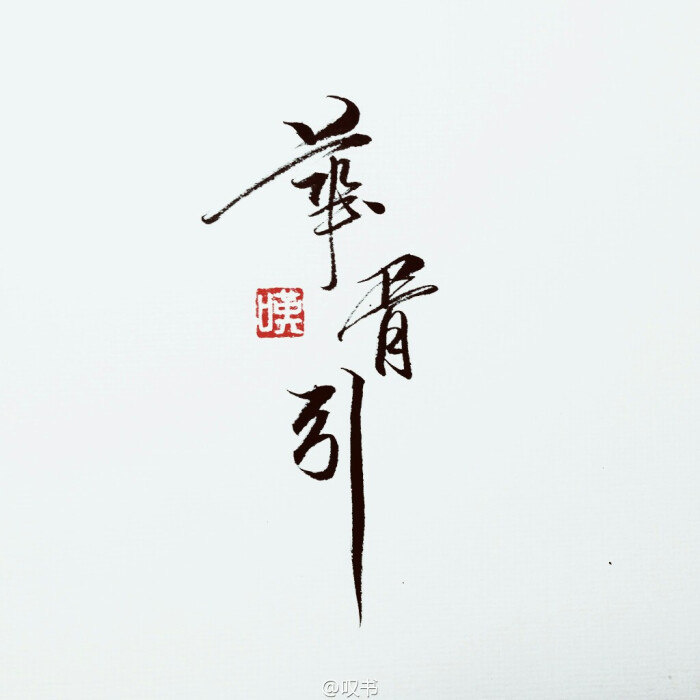 華胥引
嘆
@叹书